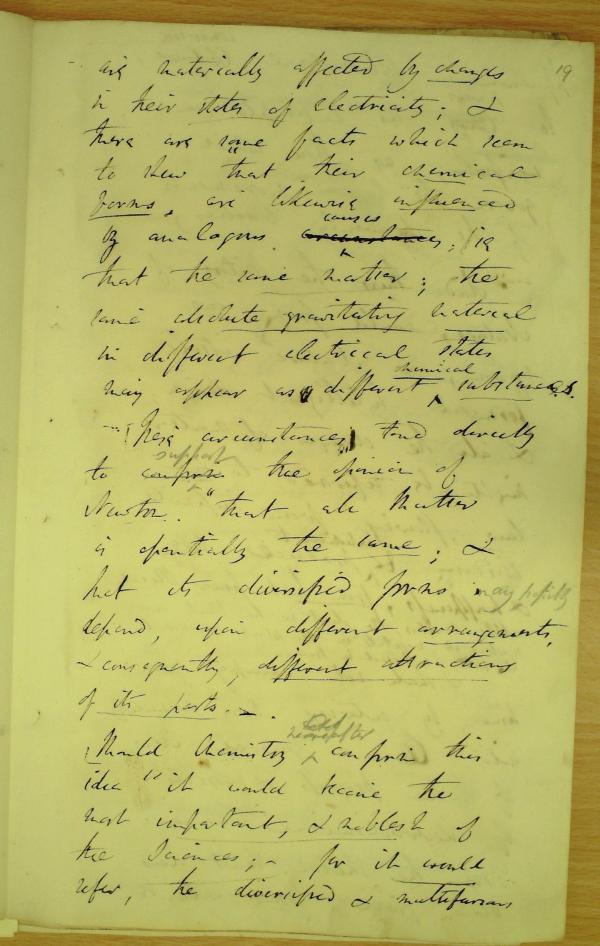 19
are materially affected by changes
in their states of electricity; &
there are some facts which seem
to shew that their chemical
forms, are likewise influenced
causes
by analogous circumstances; ie
that the same matter; the
same absolute gravitating material
in different electrical states
chemical
may appear as different substances.
These circumstances, tend directly
support
to confirm the opinion of
Newton. "that all Matter
is essentially the same; &
that its diversified forms may possibly
depend, upon different arrangements,
& consequently, different attractions
of its parts.
hereafter
Should Chemistry confirm this
idea it would become the
most important, & noblest of
the Sciences; - for it would
refer, the diversified & multifarious